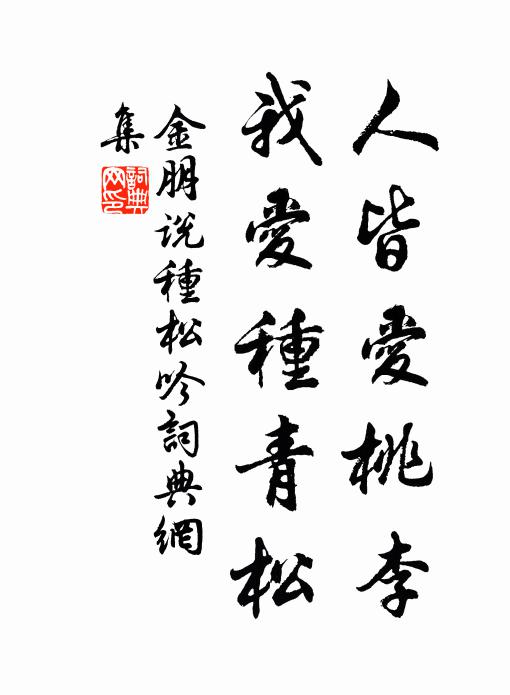 人皆愛桃李
我愛種青松
金朋说種松吟詞典網
集
詞典
网印